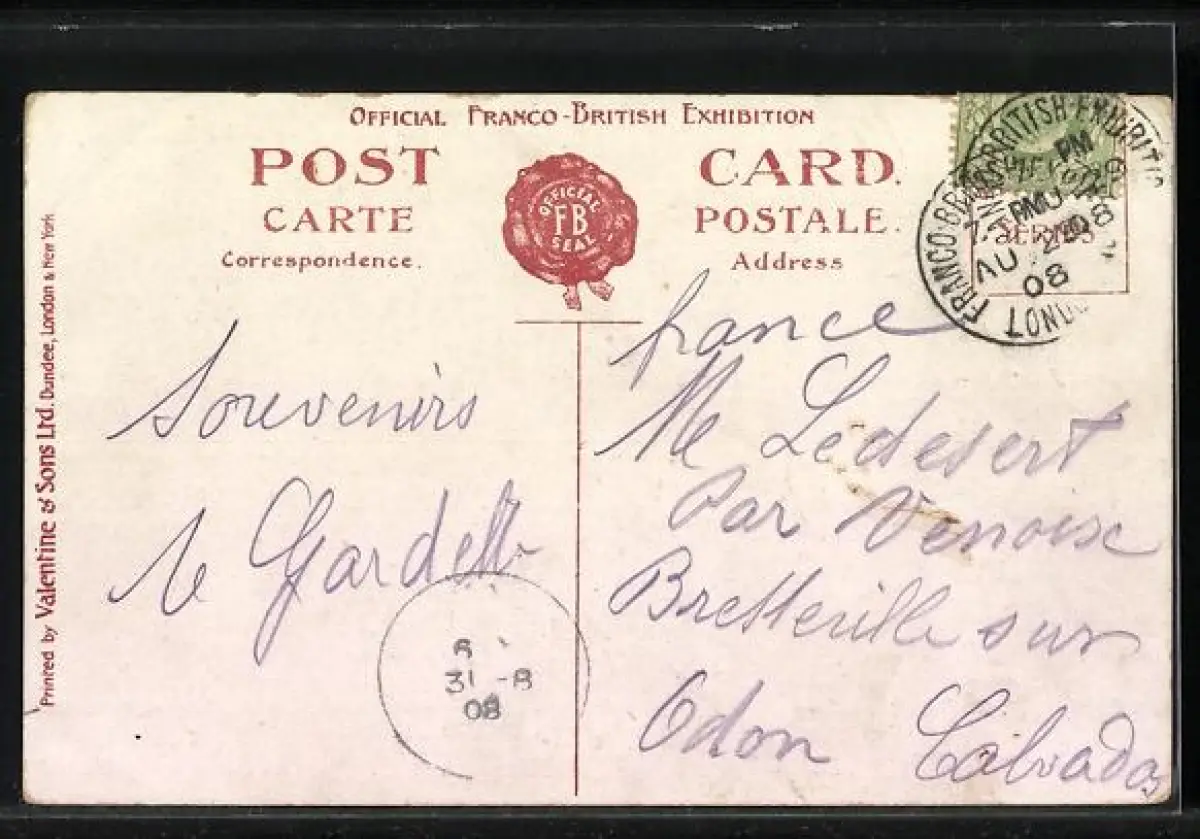 OFFICIAL FRANCO-BRITISH EXHIBITION
POST CARD.
CARTE POSTALE.
Correspondence. Address
OFFICIAL
FB
SEAL
FRANCO-BRITISH EXHIBITI
PM
AU
08
LONDON
Printed by Valentine & Sons Ltd. Dundee, London & New York
france
Souvenirs
M Ledesert
Par Venoix
Bretteville sur
Odon Calvados
31 -8
08